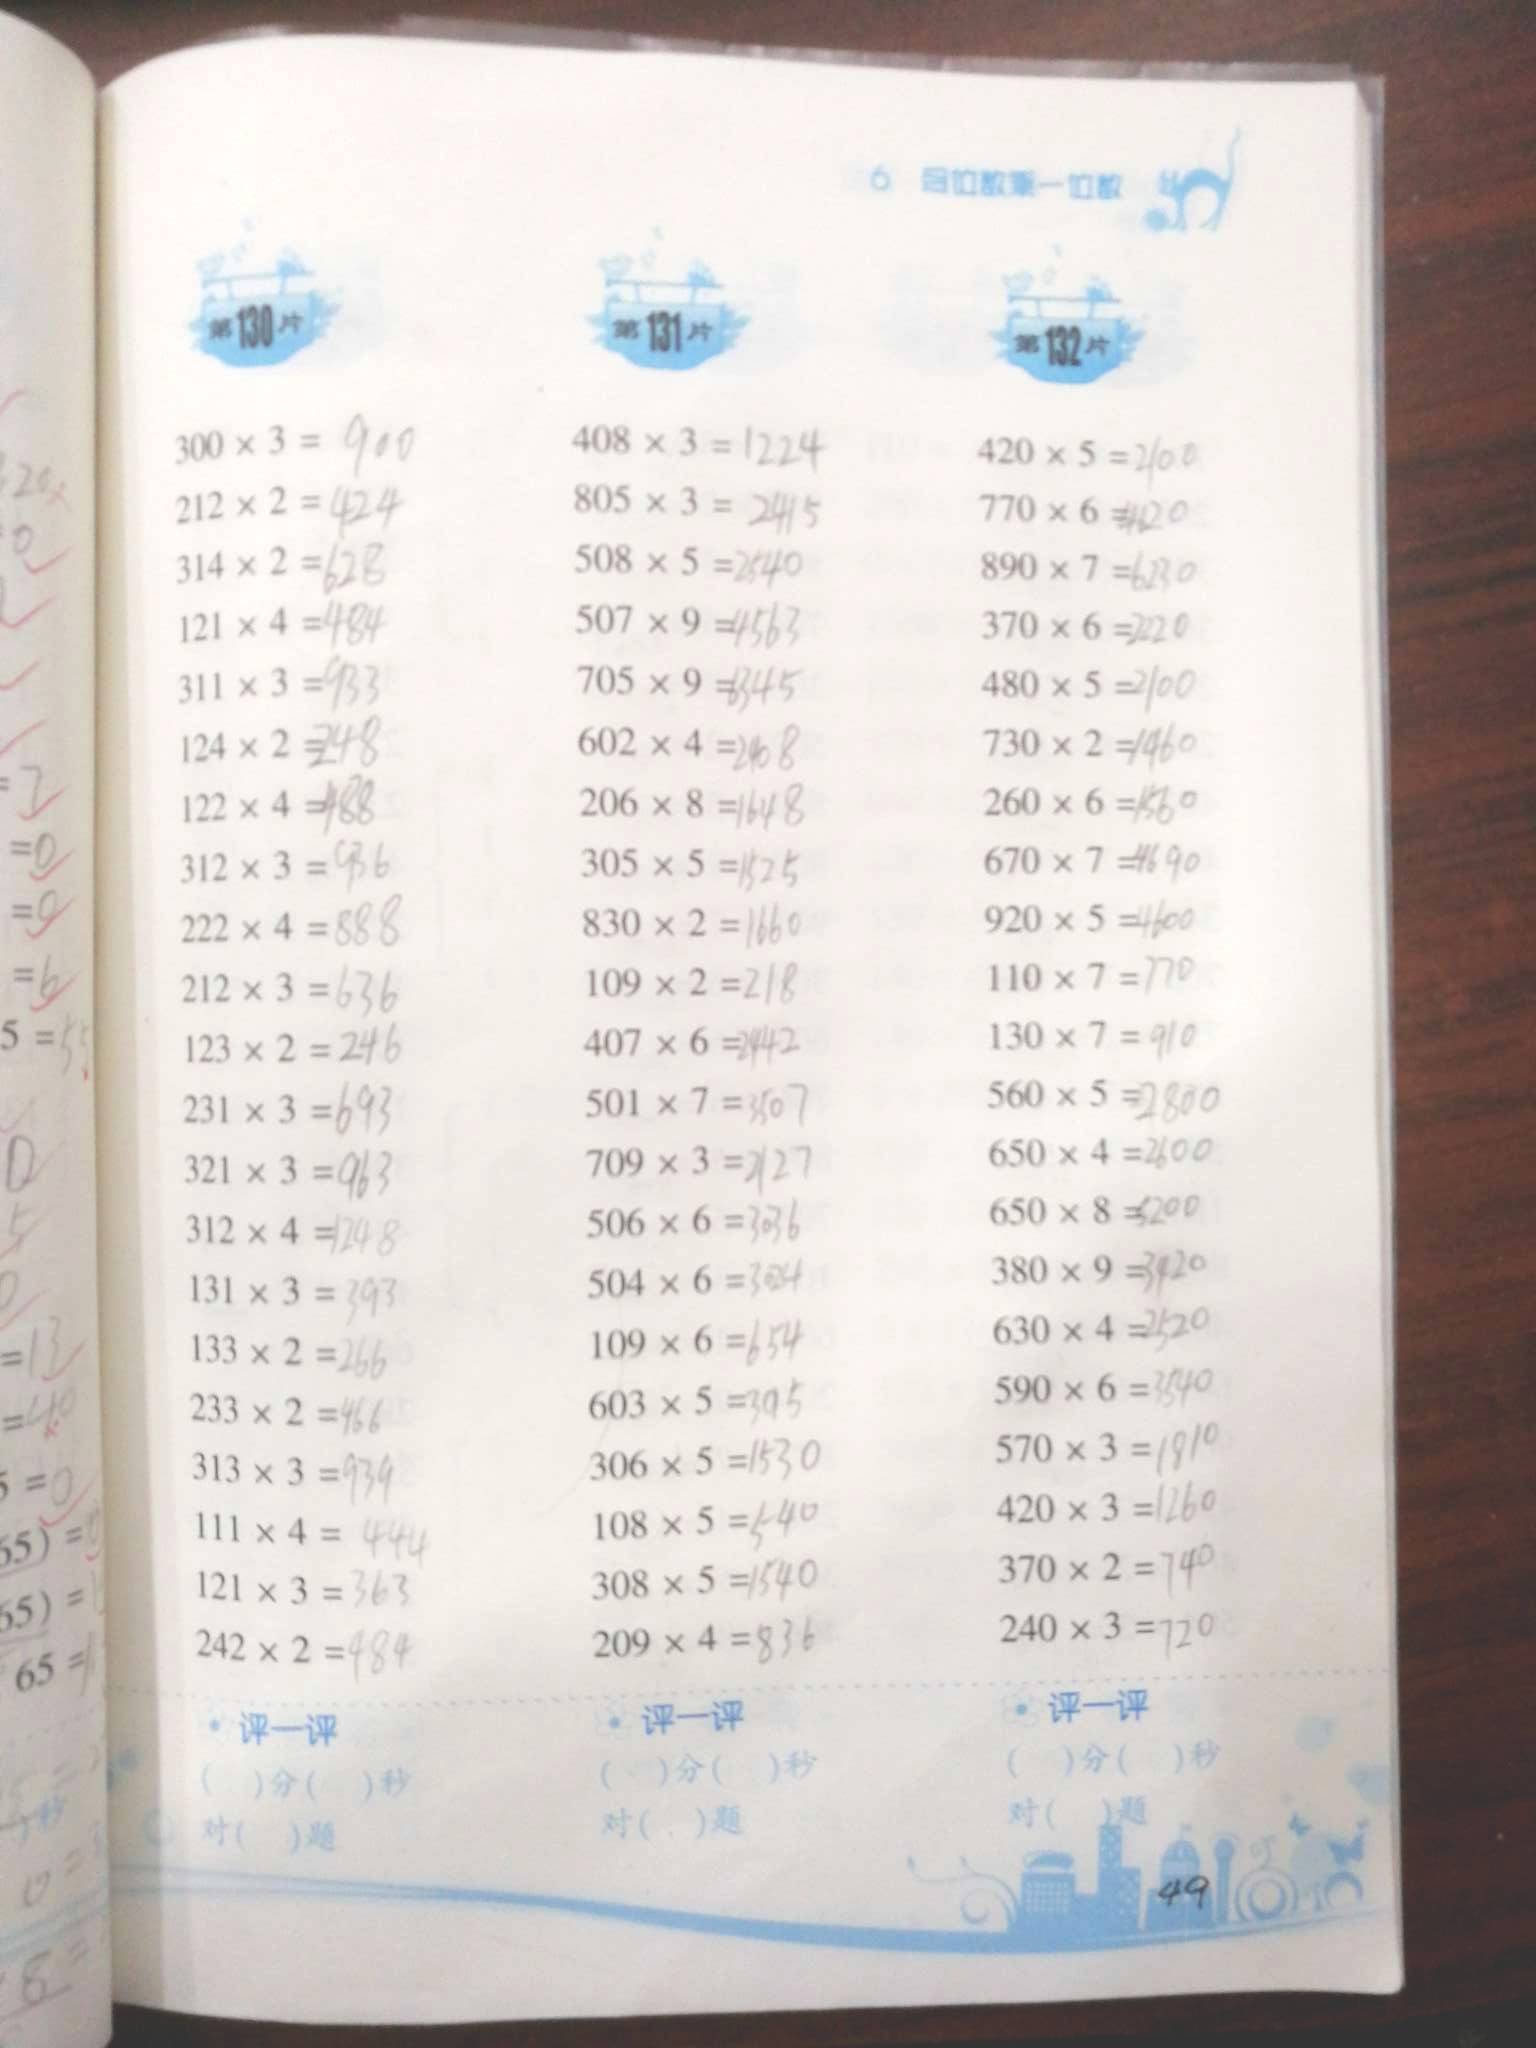 6 多位数乘一位数
第130片
300 × 3 = 900
212 × 2 = 424
314 × 2 = 628
121 × 4 = 484
311 × 3 = 933
124 × 2 = 248
122 × 4 = 488
312 × 3 = 936
222 × 4 = 888
212 × 3 = 636
123 × 2 = 246
231 × 3 = 693
321 × 3 = 963
312 × 4 = 1248
131 × 3 = 393
133 × 2 = 266
233 × 2 = 466
313 × 3 = 939
111 × 4 = 444
121 × 3 = 363
242 × 2 = 484
评一评
( )分( )秒
对( )题
第131片
408 × 3 = 1224
805 × 3 = 2415
508 × 5 = 2540
507 × 9 = 4563
705 × 9 = 6345
602 × 4 = 2408
206 × 8 = 1648
305 × 5 = 1525
830 × 2 = 1660
109 × 2 = 218
407 × 6 = 2442
501 × 7 = 3507
709 × 3 = 2127
506 × 6 = 3036
504 × 6 = 3024
109 × 6 = 654
603 × 5 = 3015
306 × 5 = 1530
108 × 5 = 540
308 × 5 = 1540
209 × 4 = 836
评一评
( )分( )秒
对( )题
第132片
420 × 5 = 2100
770 × 6 = 4620
890 × 7 = 6230
370 × 6 = 2220
480 × 5 = 2100
730 × 2 = 1460
260 × 6 = 1560
670 × 7 = 4690
920 × 5 = 4600
110 × 7 = 770
130 × 7 = 910
560 × 5 = 2800
650 × 4 = 2600
650 × 8 = 5200
380 × 9 = 3420
630 × 4 = 2520
590 × 6 = 3540
570 × 3 = 1810
420 × 3 = 1260
370 × 2 = 740
240 × 3 = 720
评一评
( )分( )秒
对( )题
49